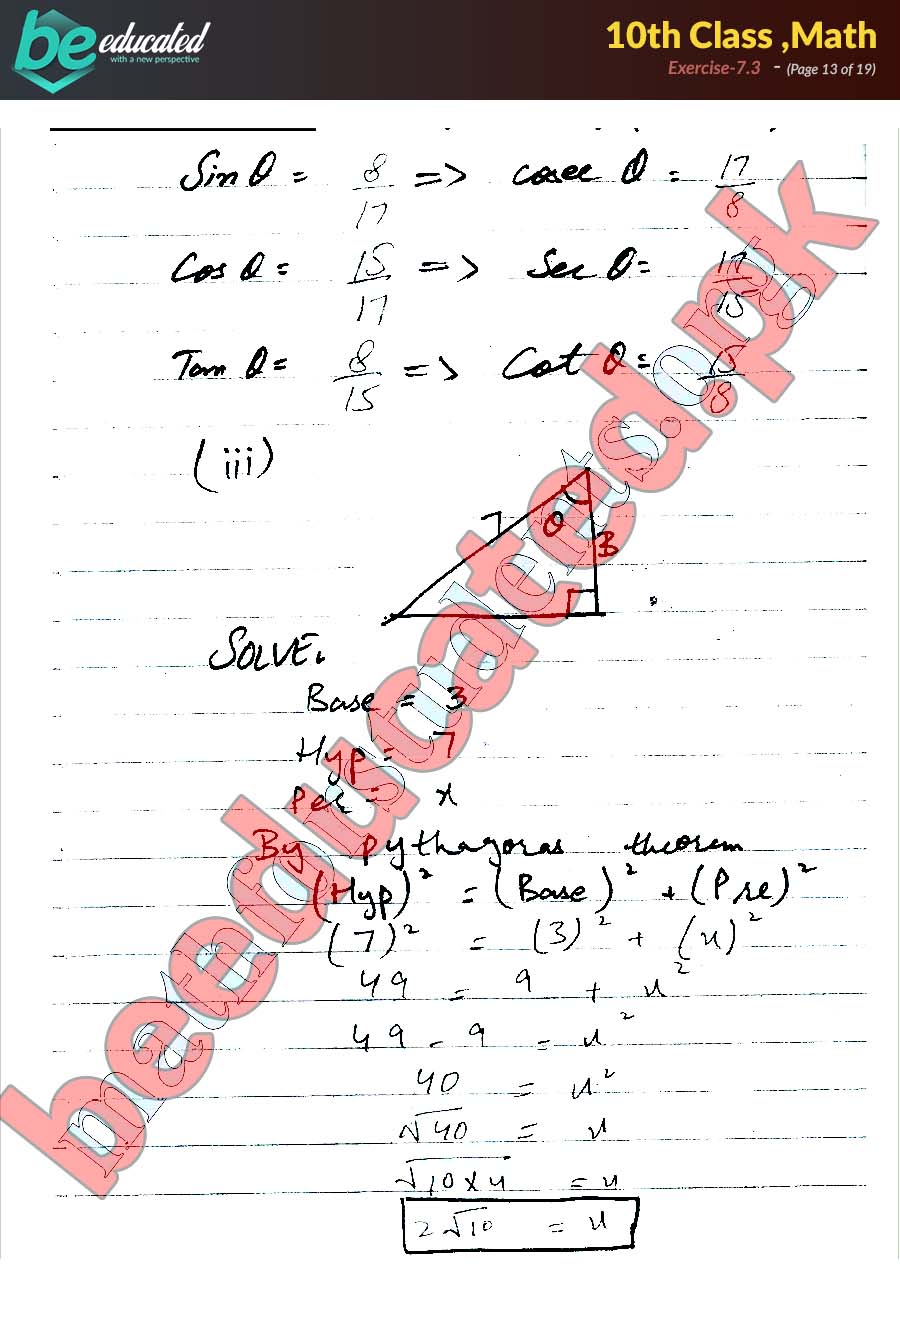 be educated
with a new perspective
10th Class ,Math
Exercise-7.3 - (Page 13 of 19)
Sin θ = 8/17 => cosec θ = 17/8
Cos θ = 15/17 => Sec θ = 17/15
Tan θ = 8/15 => Cot θ = 15/8
(iii)
7
θ
3
SOLVE.
Base = 3
Hyp = 7
Per = x
By pythagoras theorem
(Hyp)² = (Base)² + (Pre)²
(7)² = (3)² + (x)²
49 = 9 + x²
49 - 9 = x²
40 = x²
√40 = x
√10×4 = x
2√10 = x
beeducated.pk